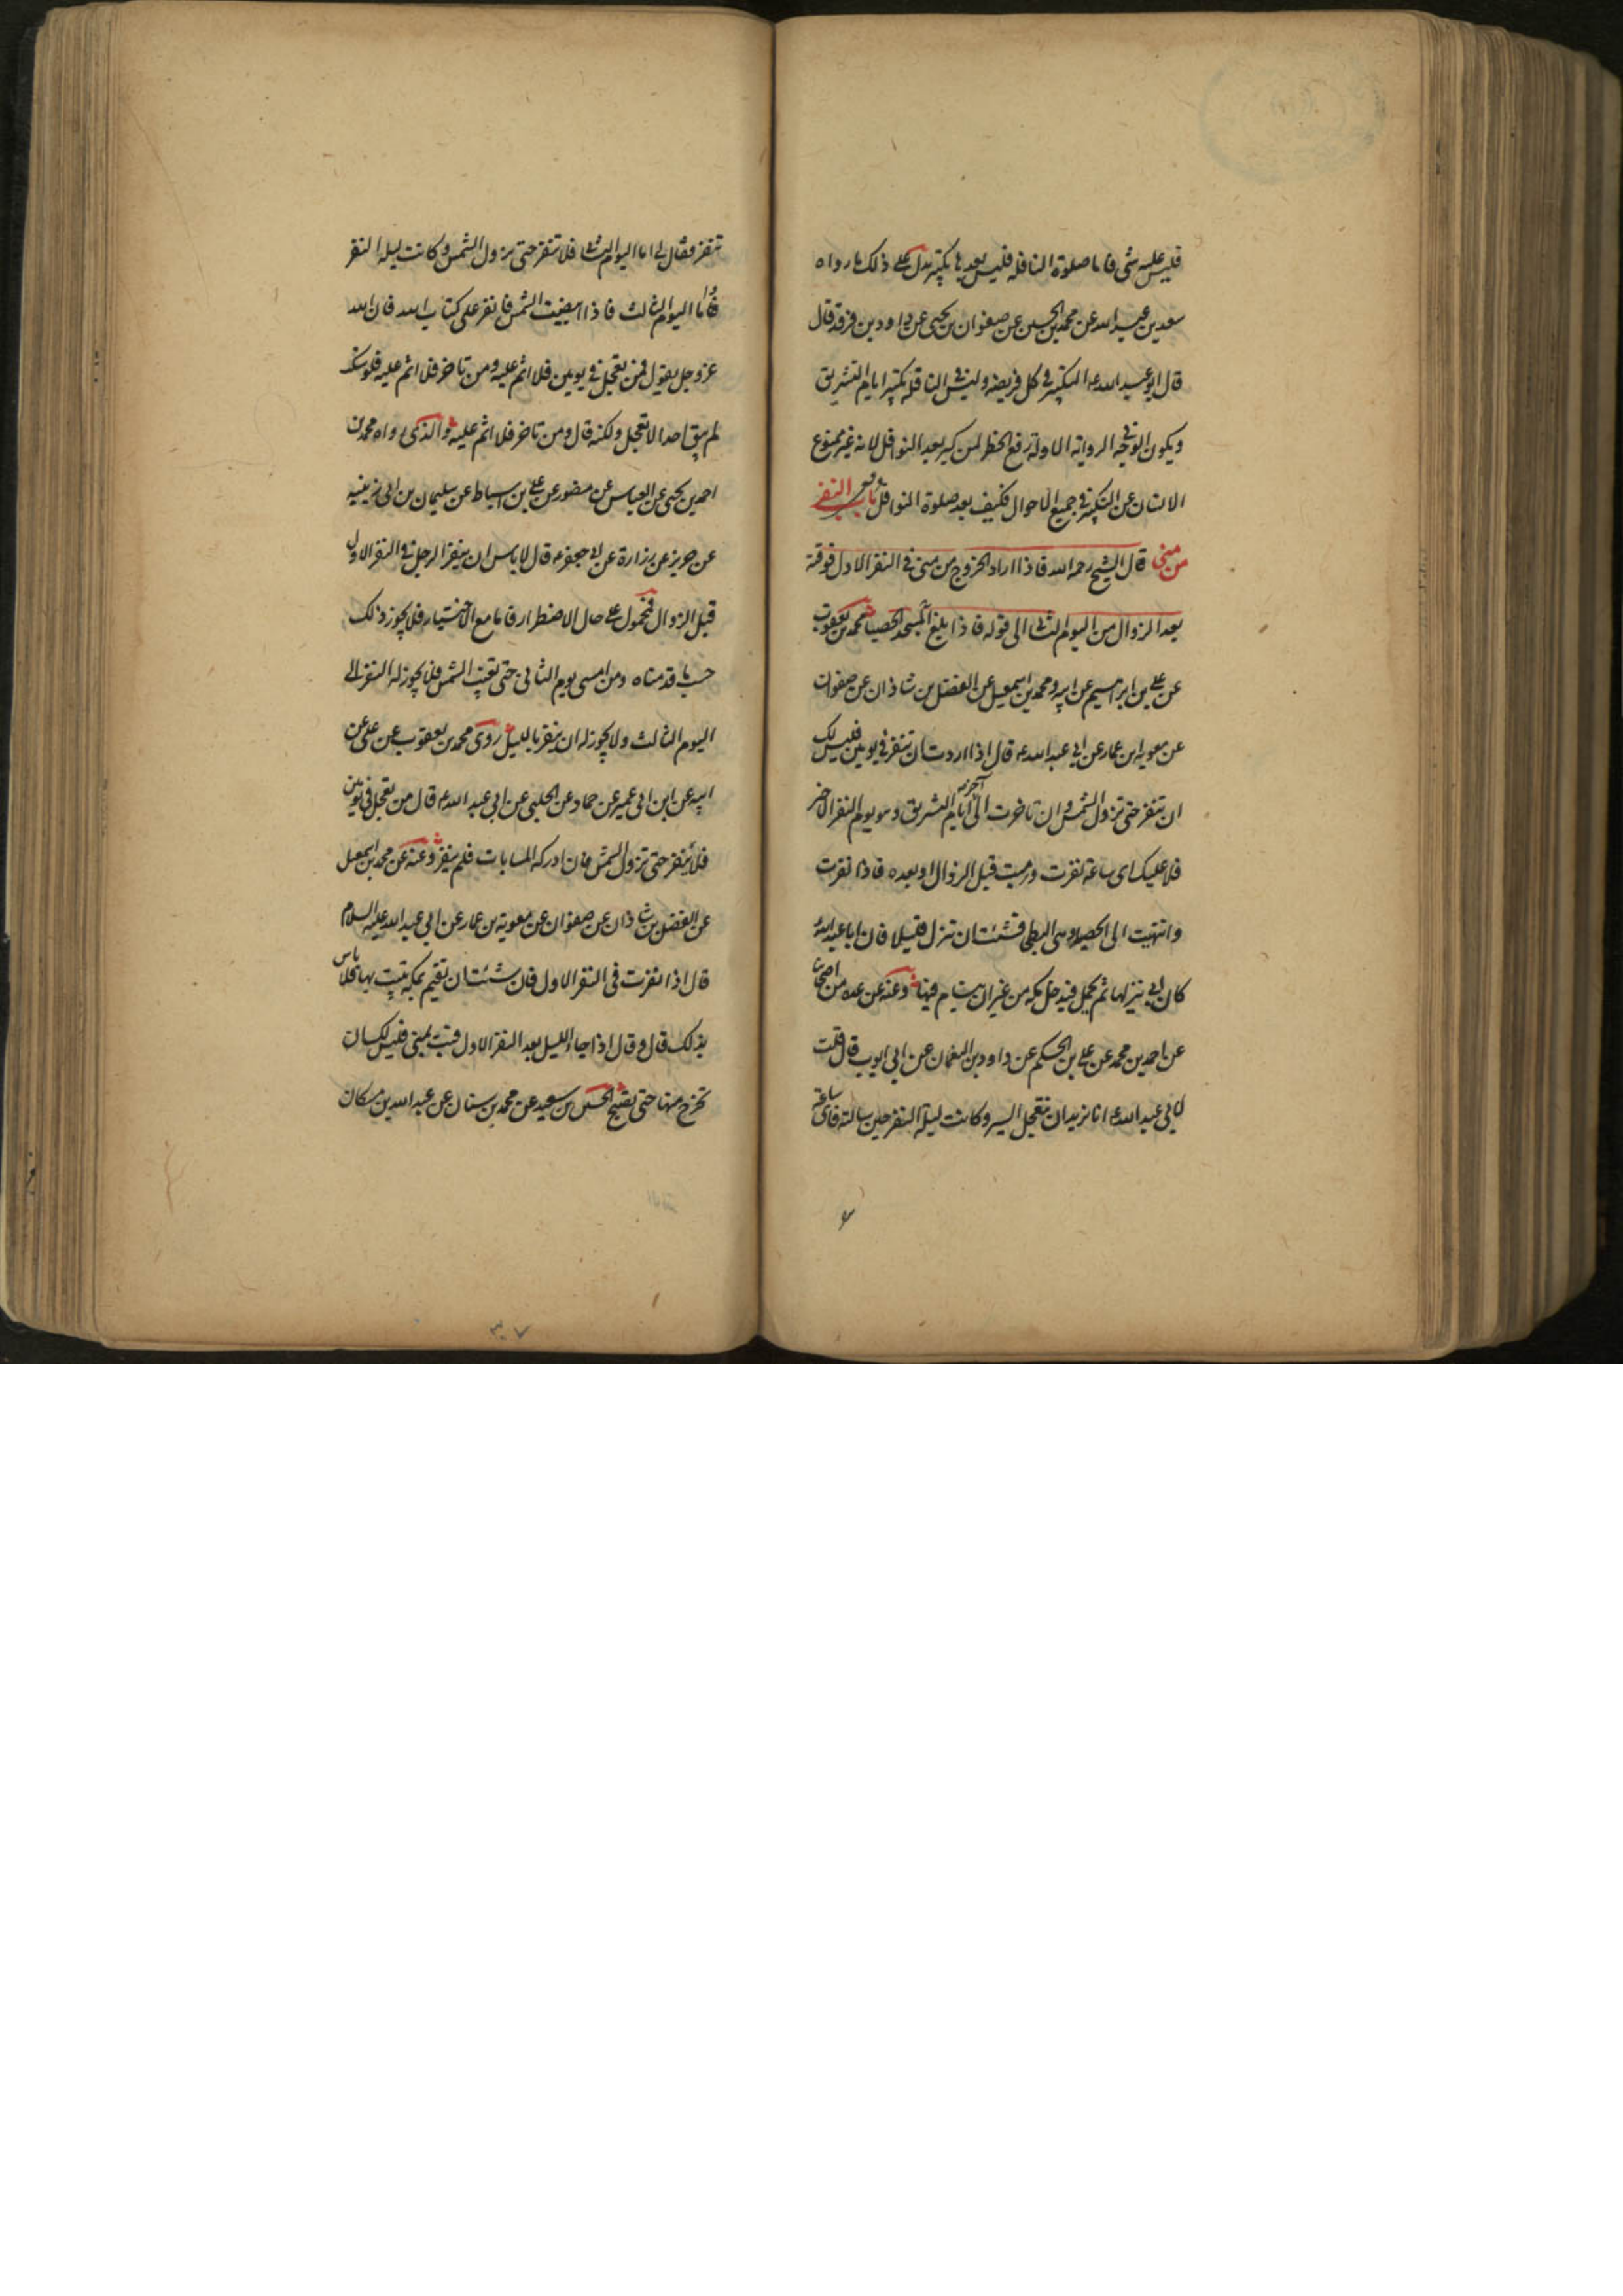 فليس عليه شى فاما صلوة النافله فليس بعدها تكبير يدل على ذلك ما رواه
سعد بن عبد الله عن محمد بن الحسين عن صفوان بن يحيى عن داود بن فرقد قال
قال ابو عبد الله ع التكبير فى كل فريضه وليس فى النافلة تكبير ايام التشريق
ويكون الوجه فى الرواية الاوله رفع الحظر لمن كبر بعد النوافل لانه غير ممنوع
الانسان عن التكبير فى جميع الاحوال فكيف بعد صلوة النوافل باب النفر
من منى قال الشيخ رحمه الله فاذا اراد الخروج من منى فى النفر الاول فوقته
بعد الزوال من اليوم الثانى الى قوله فاذا بلغ المسجد الحصبا محمد بن يعقوب
عن على بن ابرهيم عن ابيه ومحمد بن اسمعيل عن الفضل بن شاذان عن صفوان
عن معويه ابن عمار عن ابى عبد الله ع قال اذا اردت ان تنفر فى يومين فليس لك
ان تنفر حتى تزول الشمس وان تاخرت الى آخر ايام التشريق وهو يوم النفر الاخر
فلا عليك اى ساعة نفرت ورميت قبل الزوال او بعده فاذا نفرت
وانتهيت الى الحصبا وهى البطحا فشئت ان تنزل قليلا فان ابا عبد الله
كان ابى ينزلها ثم يحمل فيدخل مكه من غير ان ينام فيها وعنه عن عده من اصحابنا
عن احمد بن محمد عن على بن الحكم عن داود بن النعمان عن ابى ايوب قال قلت
لابى عبد الله ع انا نريد ان نتعجل السير وكانت ليلة النفر حين سالته فاى ساعة
تنفر فقال لى اما اليوم الثانى فلا تنفر حتى تزول الشمس وكانت ليله النفر
فاما اليوم الثالث فاذا ابيضت الشمس فانفر على كتاب الله فان الله
عز وجل يقول فمن تعجل فى يومين فلا اثم عليه ومن تاخر فلا اثم عليه فلو سكت
لم يبق احد الا تعجل ولكنه قال ومن تاخر فلا اثم عليه والذى رواه محمد بن
احمد بن يحيى عن العباس عن منصور عن على بن اسباط عن سليمان بن ابى زينبه
عن حريز عن زرارة عن ابى جعفر ع قال لا باس ان ينفر الرجل فى النفر الاول
قبل الزوال فمحمول على حال الاضطرار فاما مع الاختيار فلا يجوز ذلك
حسب ما قدمناه ومن امسى يوم الثانى حتى تغيب الشمس فلا يجوز له النفر الى
اليوم الثالث ولا يجوز له ان ينفر بالليل روى محمد بن يعقوب عن على عن
ابيه عن ابن ابى عمير عن حماد عن الحلبى عن ابى عبد الله ع قال من تعجل فى يومين
فلا ينفر حتى تزول الشمس فان ادركه المسا بات فلم ينفر وعنه عن محمد بن اسمعيل
عن الفضل بن شاذان عن صفوان عن معوية بن عمار عن ابى عبد الله عليه السلام
قال اذا نفرت فى النفر الاول فان شئت ان تقيم بمكه تبيت بها فلا باس
بذلك قال وقال اذا جاء الليل بعد النفر الاول فبت بمنى فليس لك ان
تخرج منها حتى تصبح الحسين بن سعيد عن محمد بن سنان عن عبد الله بن مسكان
٣٠٧